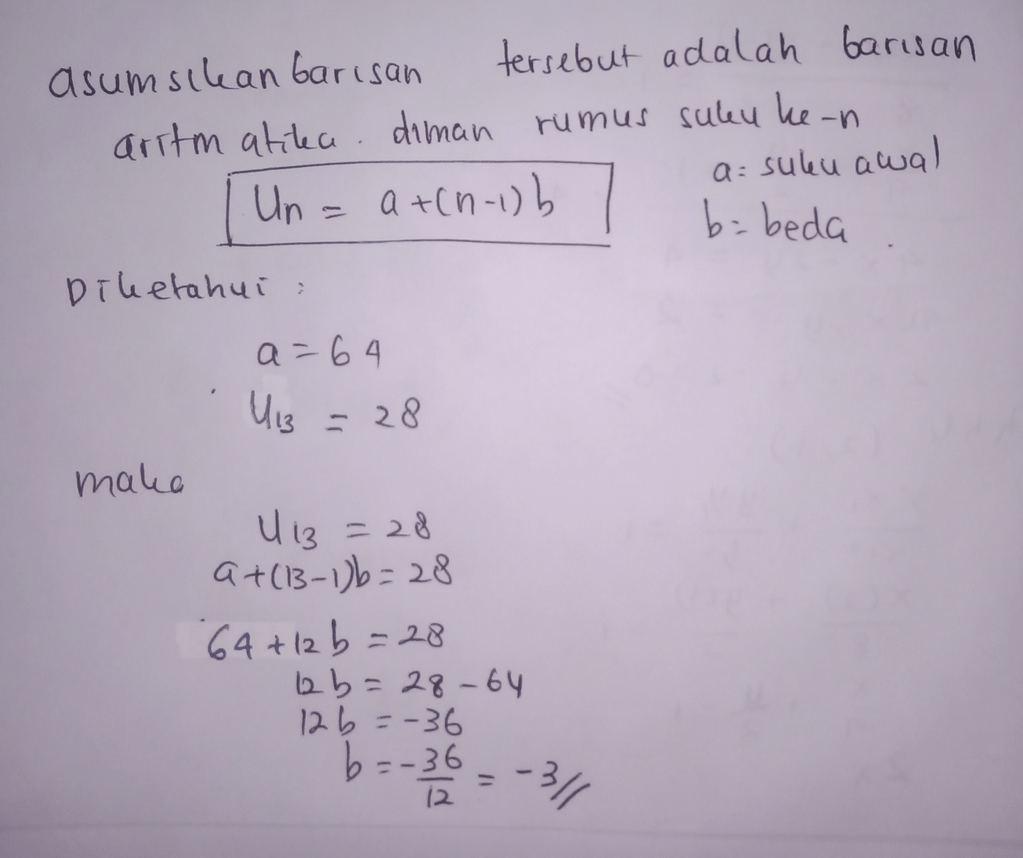 asumsikan barisan tersebut adalah barisan
aritmatika. diman rumus suku ke-n
Un = a+(n-1)b
a = suku awal
b = beda.
Diketahui :
a = 64
U13 = 28
maka
U13 = 28
a+(13-1)b = 28
64 + 12b = 28
12b = 28 - 64
12b = -36
b = -36/12 = -3//